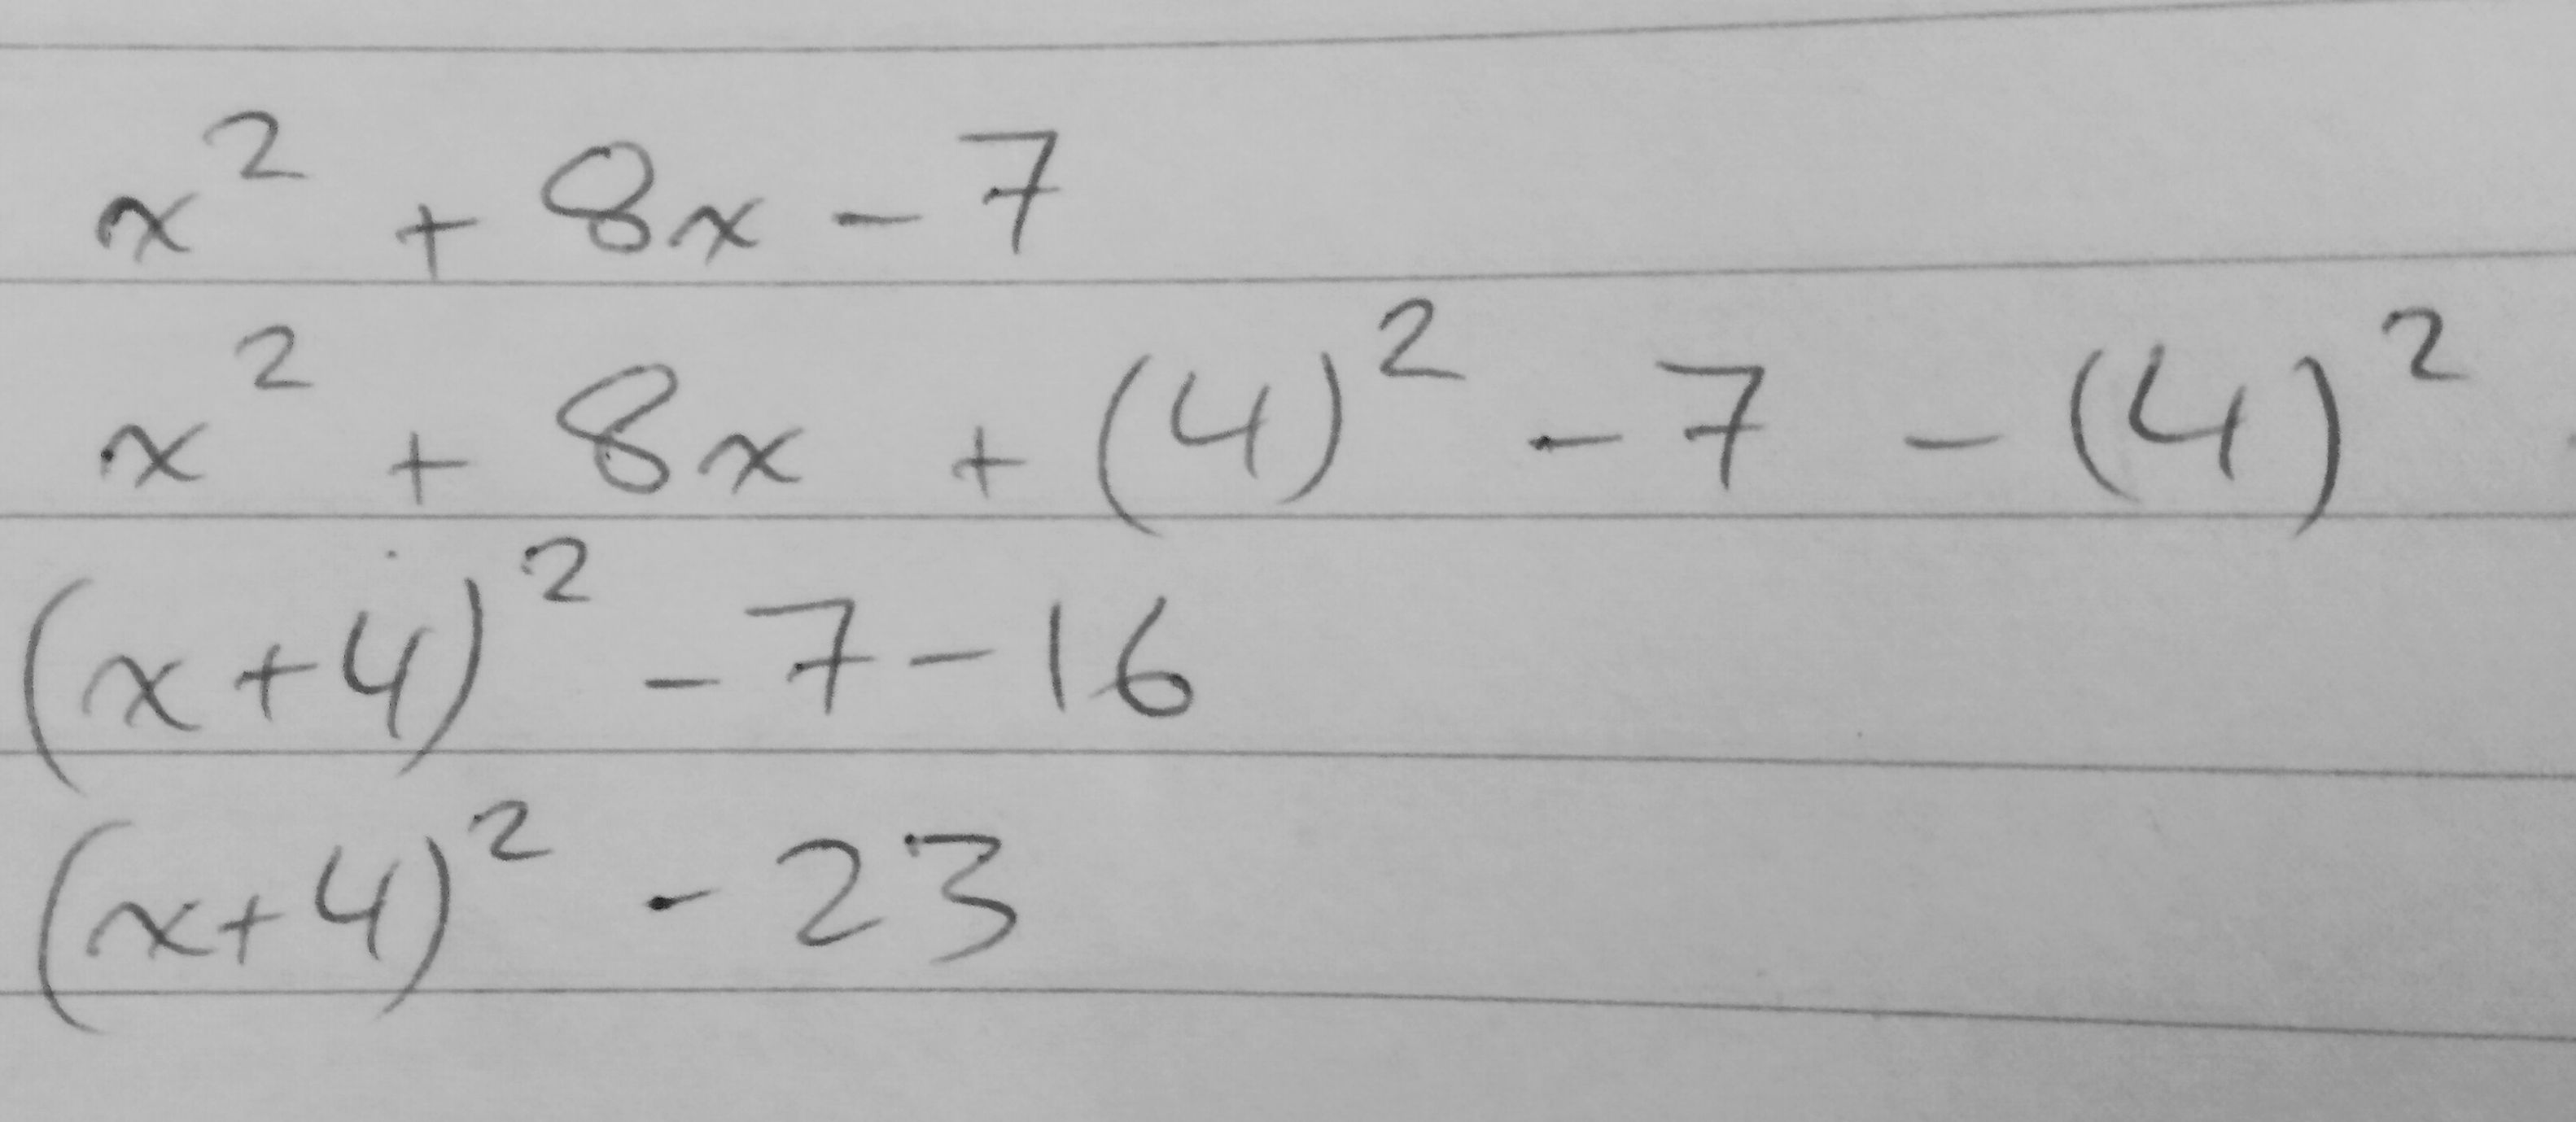 x² + 8x - 7
x² + 8x + (4)² - 7 - (4)²
(x+4)² - 7 - 16
(x+4)² - 23